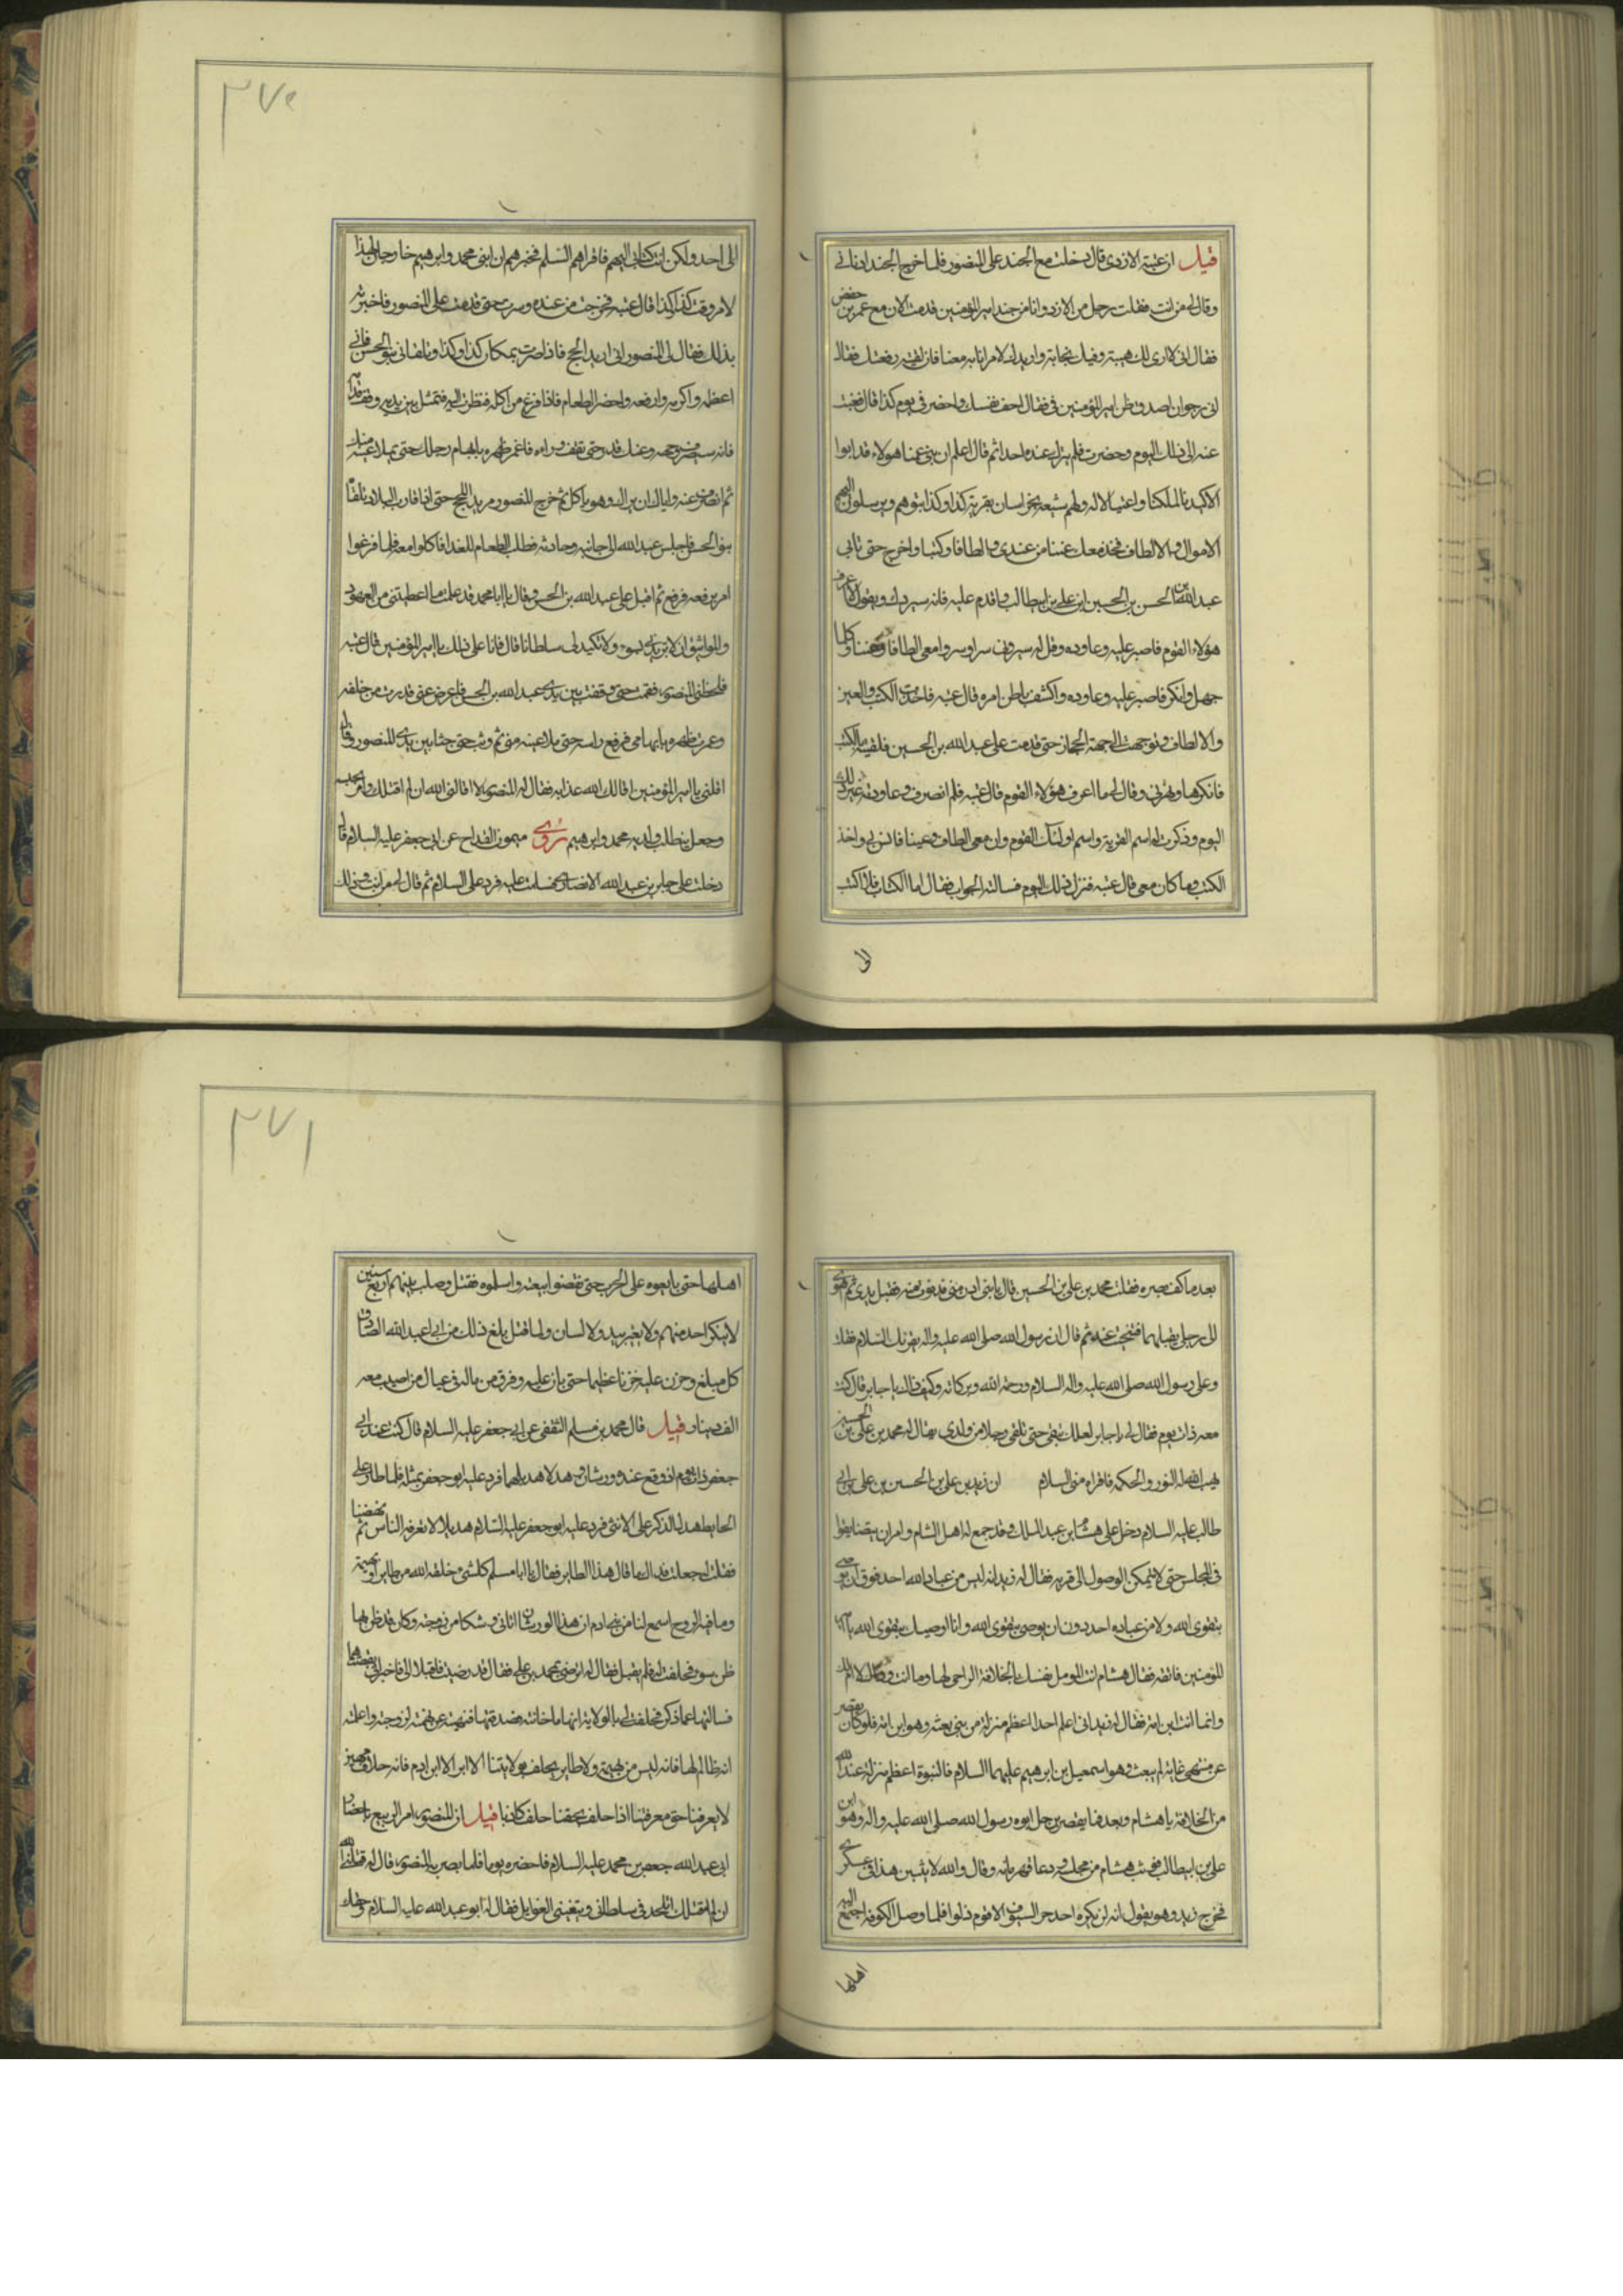 ٣٧٠
قيل ان عتبة الازدى قال دخلت مع الجند على المنصور فلما خرج الجند ادنانى
وقال لى من انت فقلت رجل من الازد وانا من جند امير المؤمنين قدمت الان مع عمر بن حفص
فقال انى لارى لك هيبة وفيك نجابة واريدك لامر انا به معنا فان كفيته رفعتك فقال
انى رجوان اصدق ظن امير المؤمنين فى فقال اخف نفسك واحضر فى يوم كذا قال فغبت
عنه الى ذلك اليوم وحضرت فلم يترك عنده احدا ثم قال اعلم ان بنى عمنا هؤلاء قد ابوا
الا كيدنا لملكنا واغتيالا له ولهم شيعة بخراسان بقرية كذا وكذا يرسلون اليهم
الاموال والالطاف فخذ معك عينا من عندى والطافا وكتبا واخرج حتى تاتى
عبد الله بن الحسن بن الحسين ابن على بن ابيطالب فاقدم عليه فانه سيردك ويقول لا اعرف
هؤلاء القوم فاصبر عليه وعاوده وقل له سيرونى سرا وسيروا معى الطافا وعينا وكلما
جهل وانكر فاصبر عليه وعاوده واكشف باطن امره قال عتبة فاخذت الكتب والعين
والالطاف وتوجهت الى جهة الحجاز حتى قدمت على عبد الله بن الحسين فلقيته بالكتب
فانكرها ونهرنى وقال لى ما اعرف هؤلاء القوم قال عتبة فلم انصرف وعاودته غير ذلك
اليوم وذكرت له اسم القرية واسم اولئك القوم وان معى الطافا وعينا فانس بى واخذ
الكتب وما كان معى قال عتبة فتركته ذلك اليوم فسالته الجواب فقال اما الكتاب فلا اكتب
الى
الى احد ولكن انت كتابى اليهم فاقراهم السلم فخبرهم ان ابنى محمد وابرهيم خارجان لهذا
الامر وقت كذا وكذا قال عتبة فخرجت من عنده وسرت حتى قدمت على المنصور فاخبرته
بذلك فقال لى المنصور انى اريد الحج فاذا صرت بمكان كذا وكذا وتلقانى بنو الحسن فانى
اعظمه واكرمه وارفعه واحضر الطعام فاذا فرغ من اكله فنظرت اليه فتمثل بين يديه وقف قدامه
فانه سيصرف وجهه وعنك فدر حتى تقف وراه فاغمز ظهره بابهام رجلك حتى يملا عينه منك
ثم انصرف عنه واياك ان يراك وهو ياكل ثم خرج المنصور مريد الحج حتى اذا قارب البلاد تلقاه
بنو الحسن فاجلس عبد الله الى جانبه وحادثه فطلب الطعام للغدا فاكلوا معه فلما فرغوا
امر برفعه فرفع ثم اقبل على عبد الله بن الحسن وقال يا ابا محمد قد علمت ما اعطيتنى من العهود
والمواثيق ان لا تريدنى بسوء ولا تكيد لى سلطانا قال فانا على ذلك يا امير المؤمنين قال عتبة
فلحظنى المنصور فقمت حتى وقفت بين يدى عبد الله بن الحسن فاعرض عنى فدرت من خلفه
وغمزت ظهره بابهامى فرفع راسه حتى ملا عينه منى ثم وثب حتى جثا بين يدى المنصور وقال
اقلنى يا امير المؤمنين اقالك الله عذابه فقال له المنصور لا اقالنى الله ان لم اقتلك وامر بحبسه
وجعل يتطلب ولديه محمد وابرهيم روى ميمون القداح عن ابى جعفر عليه السلام قال
دخلت على جابر بن عبد الله الانصارى فسلمت عليه فرد على السلام ثم قال لى من انت وذلك
٣٧١
بعد ما كف بصره فقلت محمد بن على بن الحسين قال يا بنى ادن منى فدنوت منه فقبل يدى ثم هوى
الى رجلى يقبلهما فتنحيت عنه ثم قال ان رسول الله صلى الله عليه واله يقرئك السلام فقلت
وعلى رسول الله صلى الله عليه واله السلام ورحمة الله وبركاته وكيف ذلك يا جابر قال كنت
معه ذات يوم فقال لى يا جابر لعلك تبقى حتى تلقى رجلا من ولدى يقال له محمد بن على بن الحسين
يهب الله له النور والحكمة فاقراه منى السلام ان زيد بن على بن الحسين بن على بن ابى
طالب عليه السلام دخل على هشام ابن عبد الملك وقد جمع له اهل الشام وامر ان يتضايقوا
فى المجلس حتى لا يتمكن الوصول الى قربه فقال له زيد انه ليس من عباد الله احد فوق ان يوصى
بتقوى الله ولا من عباده احد دون ان يوصى بتقوى الله وانا اوصيك بتقوى الله يا امير
المؤمنين فاتقه فقال هشام انت المؤمل نفسك بالخلافة الراجى لها وما انت وذاك لا ام لك
وانما انت ابن امة فقال له زيد انى لا اعلم احدا اعظم منزلة من نبى بعثه وهو ابن امة فلو كان يقصر
عن منتهى غاية لم يبعث وهو اسمعيل بن ابرهيم عليهما السلام فالنبوة اعظم منزلة عند الله
من الخلافة يا هشام وبعد فما يقصر برجل ابوه رسول الله صلى الله عليه واله وهو ابن
على بن ابيطالب فوثب هشام من مجلسه ودعا قهرمانه وقال والله لا يبيتن هذا فى عسكرى
فخرج زيد وهو يقول انه لن يكره احد حر السيوف الا قوم ذلوا فلما وصل الكوفة اجتمع اليه
اهلها
اهلها حتى بايعوه على الحرب حتى نقضوا بيعته واسلموه فقتل وصلب بينهم اربع سنين
لا ينكر احد منهم ولا يغير بيد ولا لسان ولما قتل بلغ ذلك من ابى عبد الله الصادق
كل مبلغ وحزن عليه حزنا عظيما حتى بان عليه وفرق من ماله فى عيال من اصيب معه
الف دينار قيل قال محمد بن مسلم الثقفى عن ابى جعفر عليه السلام قال كنت عند ابى
جعفر ذات يوم اذ وقع عنده ورشان وهدلا هديلهما فرد عليه ابو جعفر بمثله فلما طار على
الحايط هدل الذكر على الانثى فرد عليه ابو جعفر عليه السلام هديلا لا تعرفه الناس ثم نهضنا
فقلت له جعلت فداك ما قال هذا الطاير فقال يا ابا مسلم كلشئ خلقه الله من طاير او بهيمة
وما فيه الروح اسمع لنا من بنى ادم ان هذا الورشان اتانى وشكا من زوجته وكان قد ظن بها
ظن سوء فحلفت له فلم يقبل فقال له اترضى بمحمد بن على فقال قد رضيت فاقبلا الى فاخبرانى بقصتهما
فسالتها عما ذكر فحلفت لى بالولاية انها ما خانته فصدقتها فنهيته عن تهمته لزوجته واعلمته
انه ظالم لها فانه ليس من بهيمة ولا طاير يحلف بولايتنا الا ابر الا ابن ادم فانه حلاف مهين
لا يعرفنا حق معرفتنا اذا حلف بحقنا حلف كاذبا قيل ان المنصور امر الربيع باحضار
ابى عبد الله جعفر بن محمد عليه السلام فاحضره يوما فلما بصر به المنصور قال له قتلنى الله
ان لم اقتلك اتلحد فى سلطانى وتبغينى الغوايل فقال له ابو عبد الله عليه السلام